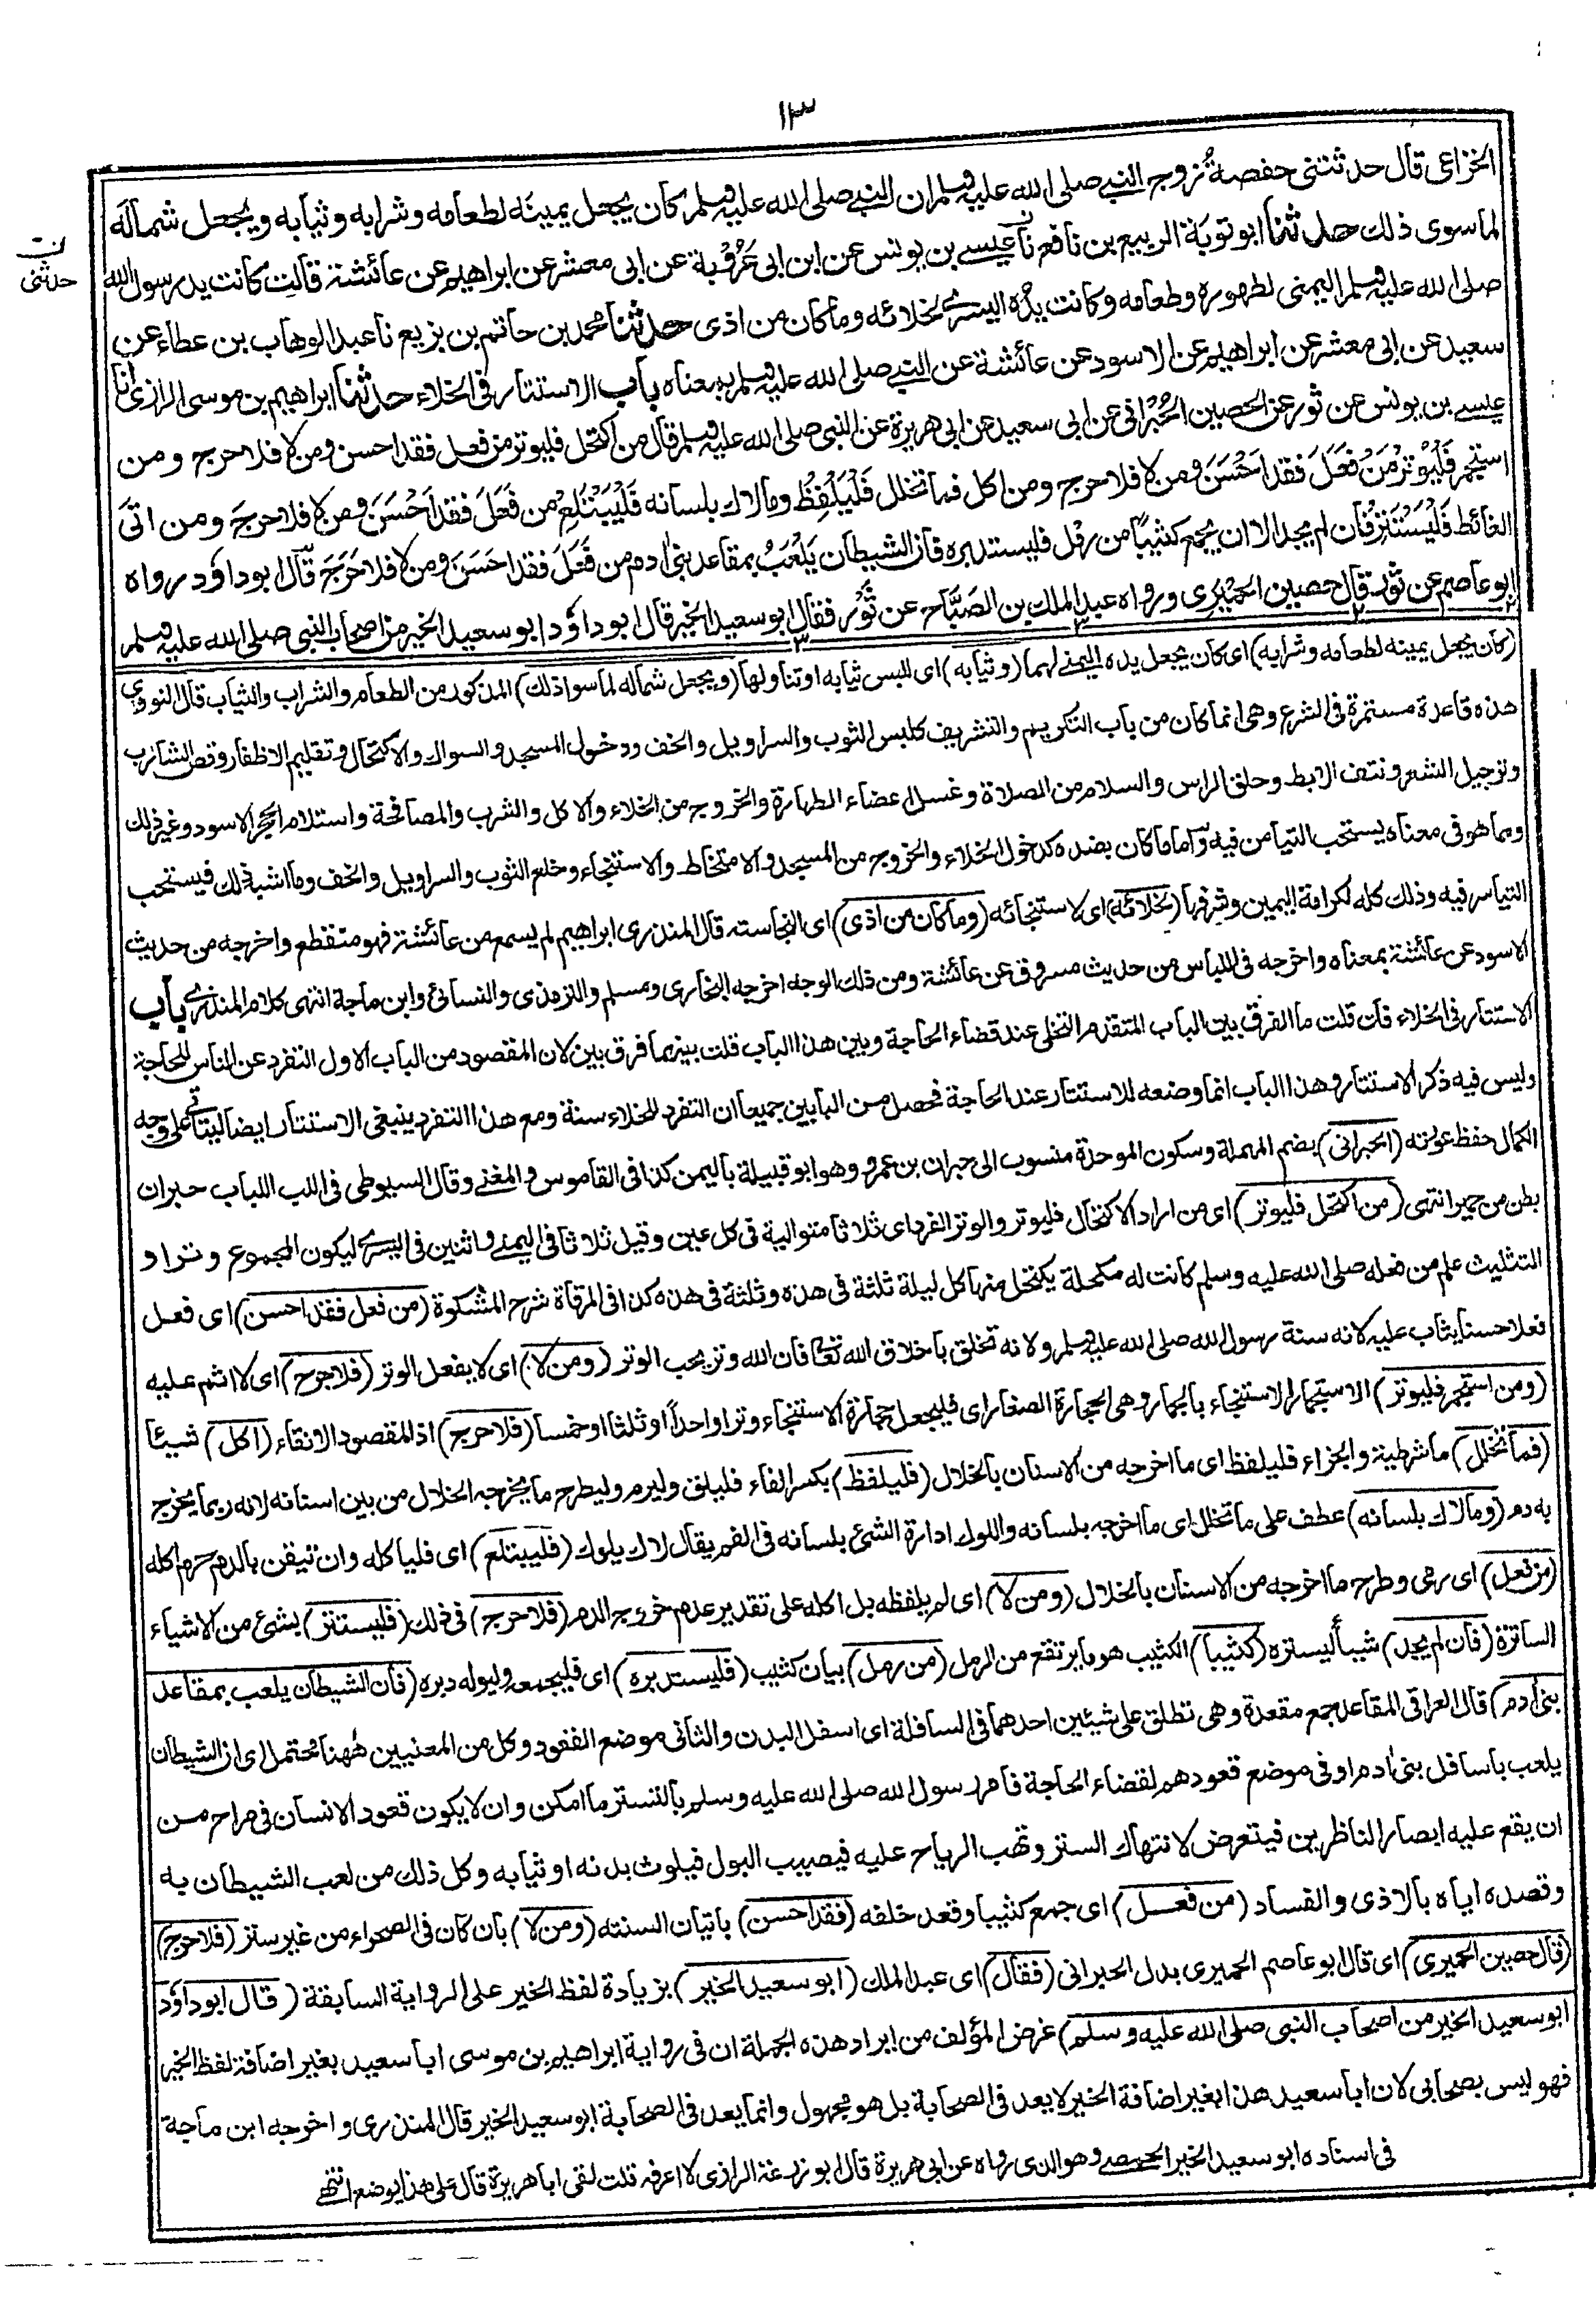 ١٣
الخزاعى قال حدثتنى حفصة زوج النبي صلى الله عليه وسلم ان النبي صلى الله عليه وسلم كان يجعل يمينه لطعامه وشرابه وثيابه ويجعل شماله
لما سوى ذلك حدثنا ابو توبة الربيع بن نافع نا عيسى بن يونس عن ابن ابى عَرُوْبة عن ابى معشر عن ابراهيم عن عائشة قالت كانت يد رسول الله
نت
حدثنى
صلى الله عليه وسلم اليمنى لطهوره وطعامه وكانت يدُه اليسرى لخلائه وما كان من اذى حدثنا محمد بن حاتم بن بزيع نا عبد الوهاب بن عطاء عن
سعيد عن ابى معشر عن ابراهيم عن الاسود عن عائشة عن النبي صلى الله عليه وسلم بمعناه باب الاستتار فى الخلاء حدثنا ابراهيم بن موسى الرازى انا
عيسى بن يونس عن ثور عن الحصين الحُبْرانى عن ابى سعيد عن ابى هريرة عن النبى صلى الله عليه وسلم قال من اكتحل فليوتر من فعل فقد احسن ومن لا فلا حرج ومن
استجمر فَلْيُوتِرْ مَنْ فَعَلَ فقد اَحْسَنَ ومن لا فلا حرج ومن اكل فما تخلل فَلْيَلْفِظْ وما لاك بلسانه فَلْيَبْتَلِعْ من فَعَلَ فَقَد اَحْسَنَ ومن لا فلا حرجَ ومن اتَى
الغائط فَلْيَسْتَتِرْ فان لم يجد الا ان يجمع كثيبًا من رمل فليستدبره فان الشيطان يَلْعَبُ بمقاعد بنى اٰدم من فَعَلَ فقد احسَنَ ومن لا فلا حَرَجَ قال ابو داؤد رواه
ابو عاصم عن ثور قال حصين الحِمْيَرِى ورواه عبد الملك بن الصَبَّاح عن ثَوْر فقال ابو سعيد الخير قال ابو داؤد ابو سعيد الخير من اصحاب النبى صلى الله عليه وسلم
(كان يجعل يمينه لطعامه وشرابه) اى كان يجعل يده اليمنى لهما (وثيابه) اى للبس ثيابه او تناولها (ويجعل شماله لما سوا ذلك) المذكور من الطعام والشراب والثياب قال النووى
هذه قاعدة مستمرة فى الشرع وهى انما كان من باب التكريم والتشريف كلبس الثوب والسراويل والخف ودخول المسجد والسواك والاكتحال وتقليم الاظفار وقص الشارب
وترجيل الشعر ونتف الابط وحلق الراس والسلام من الصلاة وغسل اعضاء الطهارة والخروج من الخلاء والاكل والشرب والمصافحة واستلام الحجر الاسود وغير ذلك
ومما هو فى معناه يستحب التيامن فيه واما ما كان بضده كدخول الخلاء والخروج من المسجد والامتخاط والاستنجاء وخلع الثوب والسراويل والخف وما اشبه ذلك فيستحب
التياسر فيه وذلك كله لكرامة اليمين وشرفها (لخلائه) اى لاستنجائه (وما كان من اذى) اى النجاسته قال المنذرى ابراهيم لم يسمع من عائشة فهو منقطع واخرجه من حديث
الاسود عن عائشة بمعناه واخرجه فى اللباس من حديث مسروق عن عائشة ومن ذلك الوجه اخرجه البخارى ومسلم والترمذى والنسائى وابن ماجة انتهى كلام المنذرى باب
الاستتار فى الخلاء فان قلت ما الفرق بين الباب المتقدم التخلى عند قضاء الحاجة وبين هذا الباب قلت بينهما فرق بين لان المقصود من الباب الاول التفرد عن الناس للحاجة
وليس فيه ذكر الاستتار وهذا الباب انما وضعه للاستتار عند الحاجة فحصل من البابين جميعا ان التفرد للخلاء سنة ومع هذا التفرد ينبغى الاستتار ايضا ليتاتى على وجه
الكمال حفظ عورته (الحبرانى) بضم المهملة وسكون الموحدة منسوب الى حبران بن عمرو وهو ابو قبيلة باليمن كذا فى القاموس والمغنى وقال السيوطى فى اللب اللباب حبران
بطن من حمير انتهى (من اكتحل فليوتر) اى من اراد الاكتحال فليوتر والوتر الفرد اى ثلاثا متوالية فى كل عين وقيل ثلاثا فى اليمنى واثنين فى اليسرى ليكون المجموع وترا و
التثليث علم من فعله صلى الله عليه وسلم كانت له مكحلة يكتحل منها كل ليلة ثلثة فى هذه وثلثة فى هذه كذا فى المرقاة شرح المشكوة (من فعل فقد احسن) اى فعل
فعلا حسنا يثاب عليه لانه سنة رسول الله صلى الله عليه وسلم ولانه تخلق باخلاق الله تعالى فان الله وتر يحب الوتر (ومن لا) اى لا يفعل الوتر (فلا حرج) اى لا اثم عليه
(ومن استجمر فليوتر) الاستجمار الاستنجاء بالجمار وهى الحجارة الصغار اى فليجعل حجارة الاستنجاء وترا واحداً او ثلثا او خمسا (فلا حرج) اذ المقصود الانقاء (اكل) شيئا
(فما تخلل) ما شرطية والجزاء فليلفظ اى ما اخرجه من الاسنان بالخلال (فليلفظ) بكسر الفاء فليلق وليرم وليطرح ما يخرجه الخلال من بين اسنانه لانه ربما يخرج
به دم (وما لاك بلسانه) عطف على ما تخلل اى ما اخرجه بلسانه واللوك ادارة الشئ بلسانه فى الفم يقال لاك يلوك (فليبتلع) اى فلياكله وان تيقن بالدم حرم اكله
(من فعل) اى رمى وطرح ما اخرجه من الاسنان بالخلال (ومن لا) اى لم يلفظه بل اكله على تقدير عدم خروج الدم (فلا حرج) فى ذلك (فليستتر) بشئ من الاشياء
الساترة (فان لم يجد) شيأ ليستره (كثيبا) الكثيب هو ما يرتفع من الرمل (من رمل) بيان كثيب (فليستدبره) اى فليجمعه وليوله دبره (فان الشيطان يلعب بمقاعد
بنى اٰدم) قال العراقى المقاعد جمع مقعدة وهى تطلق على شيئين احدهما فى السافلة اى اسفل البدن والثانى موضع القعود وكل من المعنيين ههنا محتمل اى ان الشيطان
يلعب باسافل بنى اٰدم او فى موضع قعودهم لقضاء الحاجة فامر رسول الله صلى الله عليه وسلم بالتستر ما امكن وان لا يكون قعود الانسان فى مراح من
ان يقع عليه ابصار الناظرين فيتعرض لانتهاك الستر وتهب الرياح عليه فيصيب البول فيلوث بدنه او ثيابه وكل ذلك من لعب الشيطان به
وقصده اياه بالاذى والفساد (من فعل) اى جمع كثيبا وقعد خلفه (فقد احسن) باتيان السنته (ومن لا) بان كان فى الصحراء من غير ستر (فلا حرج)
(قال حصين الحميرى) اى قال ابو عاصم الحميرى بدل الحبرانى (فقال) اى عبد الملك (ابو سعيد الخير) بزيادة لفظ الخير على الرواية السابقة (قال ابو داؤد
ابو سعيد الخير من اصحاب النبى صلى الله عليه وسلم) غرض المؤلف من ايراد هذه الجملة ان فى رواية ابراهيم بن موسى ابا سعيد بغير اضافة لفظ الخير
فهو ليس بصحابى لان ابا سعيد هذا بغير اضافة الخير لا يعد فى الصحابة بل هو مجهول وانما يعد فى الصحابة ابو سعيد الخير قال المنذرى واخرجه ابن ماجة
فى اسناده ابو سعيد الخير الحمصى وهو الذى رواه عن ابى هريرة قال ابو زرعة الرازى لا اعرفه قلت لقى ابا هريرة قال على هذا يوضع انتهى